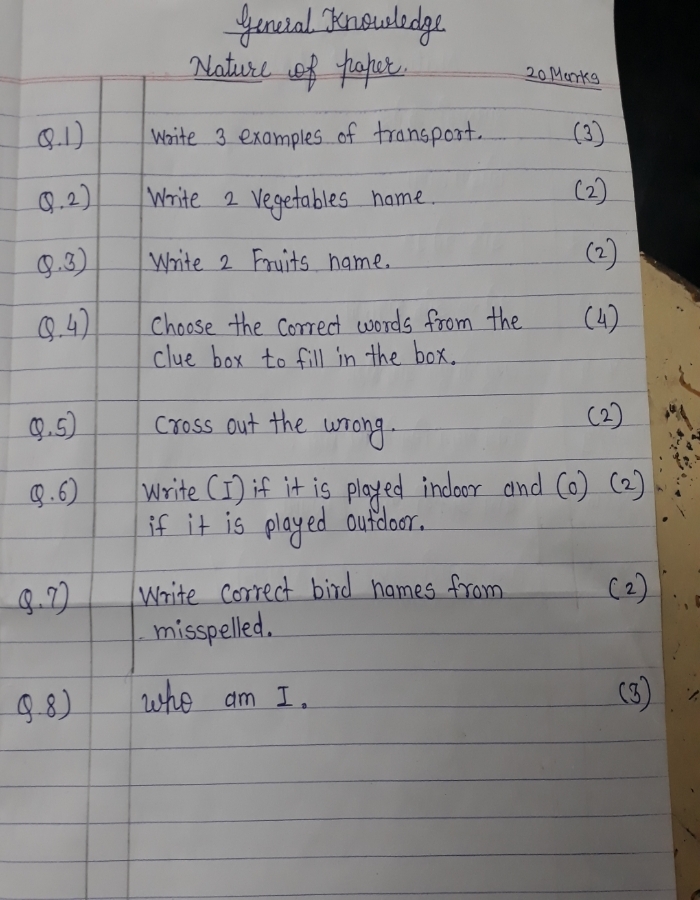 General Knowledge
Nature of paper.
20 Marks
Q.1) Write 3 examples of transport. (3)
Q.2) Write 2 Vegetables name. (2)
Q.3) Write 2 Fruits name. (2)
Q.4) Choose the correct words from the (4)
clue box to fill in the box.
Q.5) Cross out the wrong. (2)
Q.6) Write (I) if it is played indoor and (O) (2)
if it is played outdoor.
Q.7) Write correct bird names from (2)
misspelled.
Q.8) who am I. (3)